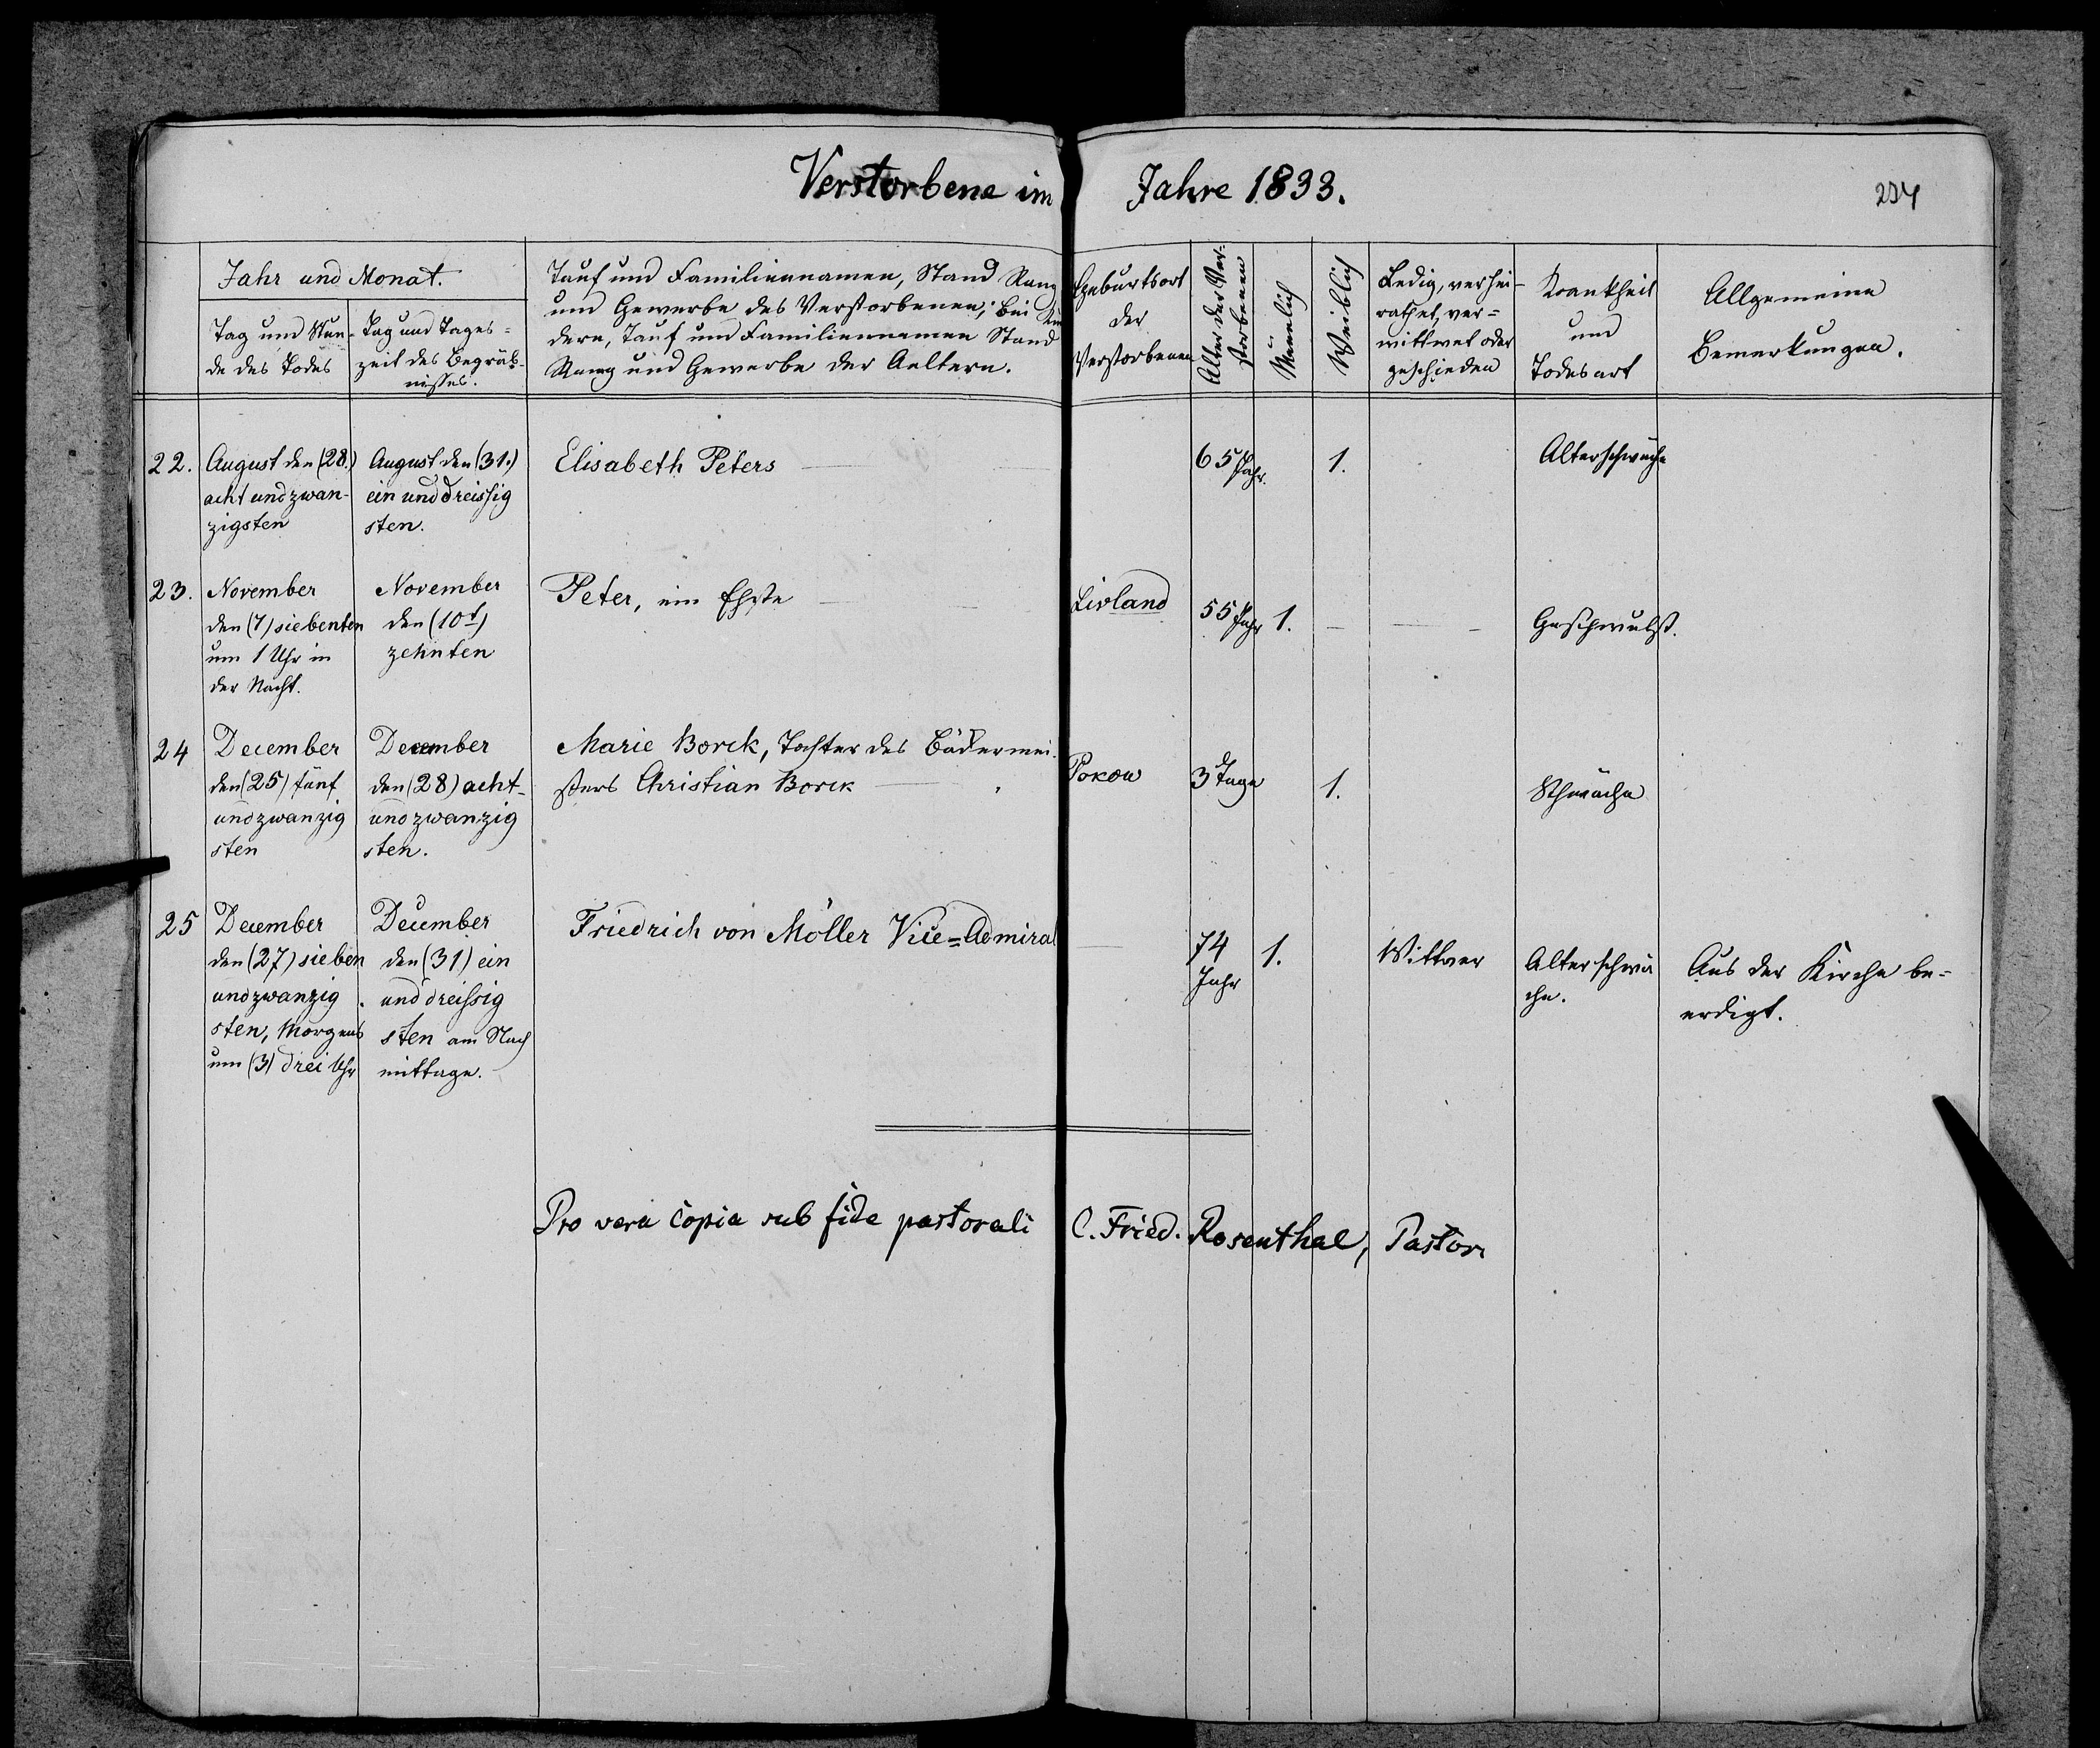 Verstorbene im Jahre 1833.
234
Jahr und Monat.
Tag und Stun-
de des Todes
Tag und Tages-
zeit des Begräb-
nisses.
Tauf und Familiennamen, Stand Rang
und Gewerbe des Verstorbenen; bei Kin
dern, Tauf und Familiennamen Stand
Rang und Gewerbe der Aeltern.
Geburtsort
der
Verstorbenen
Alter der Ver-
storbenen
Männlich
Weiblich
Ledig, verhei-
rathet, ver-
wittwet oder
geschieden
Krankheit
und
Todesart
Allgemeine
Bemerkungen.
22.
August den (28.)
acht und zwan-
zigsten
August den (31.)
ein und dreissig
sten.
Elisabeth Peters
65 Jahr.
1.
Alterschwäche
23.
November
den (7) siebenten
um 1 Uhr in
der Nacht.
November
den (10t)
zehnten
Peter, ein Ehste
Livland
55 Jahr
1.
Geschwulst.
24
December
den (25) fünf
und zwanzig
sten
December
den (28) acht-
und zwanzig
sten.
Marie Borck, Tochter des Bäckermei-
sters Christian Borck
3 Tage
1.
Schwäche
25
December
den (27) sieben
und zwanzig
sten, Morgens
um (3) drei Uhr
December
den (31) ein
und dreissig
sten am Nach
mittage.
Friedrich von Möller Vice=Admiral
74
Jahr
1.
Wittwer
Alterschwä
che.
Aus der Kirche be-
erdigt.
Pro vera copia sub fide pastorali C. Fried. Rosenthal, Pastor